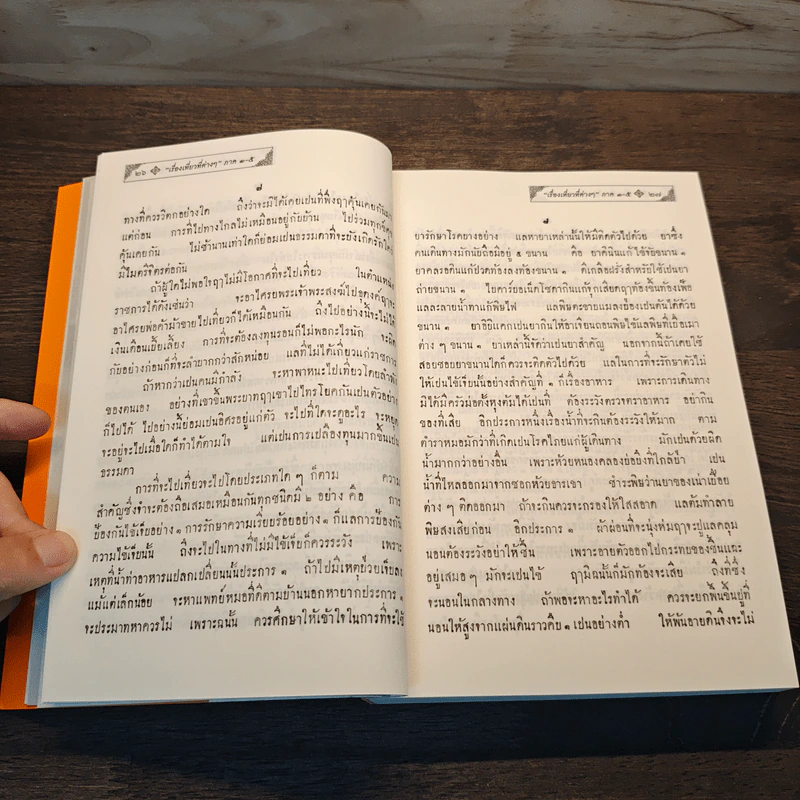 ๒๖ "เรื่องเที่ยวที่ต่างๆ" ภาค ๑-๕
๗
ทางที่ควรวิตกอย่างใด ถึงว่าจะมิได้เคยเปนที่พึ่งฤๅคุ้นเคยกันมา
แต่ก่อน การที่ไปทางไกลไม่เหมือนอยู่กับบ้าน ไปร่วมทุกข์ศุข
คุ้นเคยกัน ไม่ช้านานเท่าใดก็ย่อมเปนธรรมดาที่จะบังเกิดรักใคร่
มีไมตรีจิตรต่อกัน
ถ้าผู้ใดไม่พอใจฤๅไม่มีโอกาศที่จะไปเที่ยว ในตำแหน่ง
ราชการได้ดังเช่นว่า จะอาไศรยพระเจ้าพระสงฆ์ไปธุดงค์ฤๅจะ
อาไศรยพ่อค้าม้าขายไปเที่ยวก็ได้เหมือนกัน ถึงไปอย่างนี้จะไม่ได้
เงินเดือนเบี้ยเลี้ยง การที่จะต้องลงทุนรอนก็ไม่พอกะไรนัก จะผิด
กับอย่างก่อนก็ที่จะลำบากกว่าสักหน่อย แลที่ไม่ได้เกี่ยวแก่ราชการ
ถ้าหากว่าเปนคนมีกำลัง จะพาพาหนะไปเที่ยวโดยลำพัง
ของตนเอง อย่างที่เขาขึ้นพระบาทฤๅเขาไปไทรโยคกันเปนตัวอย่าง
ก็ไปได้ ไปอย่างนี้ย่อมเปนอิศรอยู่แก่ตัว จะไปที่ใดจะดูอะไร จะหยุด
จะอยู่จะไปเมื่อใดก็ทำได้ตามใจ แต่เปนการเปลืองทุนมากขึ้นเปน
ธรรมดา
การที่จะไปเที่ยวจะไปโดยประเภทใด ๆ ก็ตาม ความ
สำคัญซึ่งจำจะต้องถือเสมอเหมือนกันทุกชนิดมี ๒ อย่าง คือ การ
ป้องกันไข้เจ็บอย่าง ๑ การรักษาความเรียบร้อยอย่าง ๑ ก็แลการป้องกัน
ความไข้เจ็บนั้น ถึงจะไปในทางที่ไม่มีไข้เจ็บก็ควรระวัง เพราะ
เหตุที่น้ำท่าอาหารแปลกเปลี่ยนนั้นประการ ๑ ถ้าไปมีเหตุป่วยเจ็บลง
แม้แต่เล็กน้อย จะหาแพทย์หมอที่ดีตามบ้านนอกหายากประการ ๑
จะประมาทหาควรไม่ เพราะฉนั้น ควรศึกษาให้เข้าใจในการที่จะใช้
"เรื่องเที่ยวที่ต่างๆ" ภาค ๑-๕ ๒๗
๘
ยารักษาโรคบางอย่าง แลหายาเหล่านั้นให้มีติดตัวไปด้วย ยาซึ่ง
คนเดินทางมักนับถือมีอยู่ ๕ ขนาน คือ ยาควินินแก้ไข้จับขนาน ๑
ยาคลอรอดินแก้ปวดท้องลงท้องขนาน ๑ ดีเกลือฝรั่งสำหรับใช้เปนยา
ถ่ายขนาน ๑ ไบคาร์บอเน็ตโซดากินแก้จุกเสียดฤๅท้องขึ้นท้องเฟ้อ
แลละลายน้ำทาแก้พิษไฟ แลพิษตะขาบแมลงป่องเปนต้นได้ด้วย
ขนาน ๑ ยาอิปิแคกเปนยากินให้อาเจียนถอนพิษไข้แลพิษที่เบื่อเมา
ต่าง ๆ ขนาน ๑ ยาเหล่านี้จัดว่าเปนยาสำคัญ นอกจากนี้ถ้าเคยใช้
สอยชอบยาขนานใดก็ควรจะติดตัวไปด้วย แลในการที่จะรักษาตัวไม่
ให้เปนไข้เจ็บนั้นอย่างสำคัญที่ ๑ ก็เรื่องอาหาร เพราะการเดินทาง
มิได้มีครัวม่อตั้งหุงต้มได้เปนที่ ต้องระวังตรวจตราอาหาร อย่ากิน
ของที่เสีย อีกประการหนึ่งเรื่องน้ำที่จะกินต้องระวังให้มาก ตาม
ตำราหมอมักว่าที่เกิดเปนโรคไภยแก่ผู้เดินทาง มักเปนด้วยผิด
น้ำมากกว่าอย่างอื่น เพราะห้วยหนองคลองบ่อบึงที่ใกล้ป่า เปน
น้ำที่ไหลออกมาจากซอกห้วยธารเขา ชำระพิษว่านยาของเน่าเปื่อย
ต่าง ๆ ติดออกมา ถ้าจะกินควรจะกรองให้ใสสอาด แลต้มทำลาย
พิษสงเสียก่อน อีกประการ ๑ ผ้าผ่อนที่จะนุ่งห่มฤๅจะปูแลคลุม
นอนต้องระวังอย่าให้ชื้น เพราะอายตัวออกไปกระทบของชื้นแฉะ
อยู่เสมอ ๆ มักจะเปนไข้ ฤๅมิฉนั้นก็มักท้องจะเสีย ถึงที่ซึ่ง
จะนอนในกลางทาง ถ้าพอจะหาอะไรทำได้ ควรจะยกพื้นขึ้นปูที่
นอนให้สูงจากแผ่นดินราวคืบ ๑ เปนอย่างต่ำ ให้พ้นอายดินจึงจะไม่